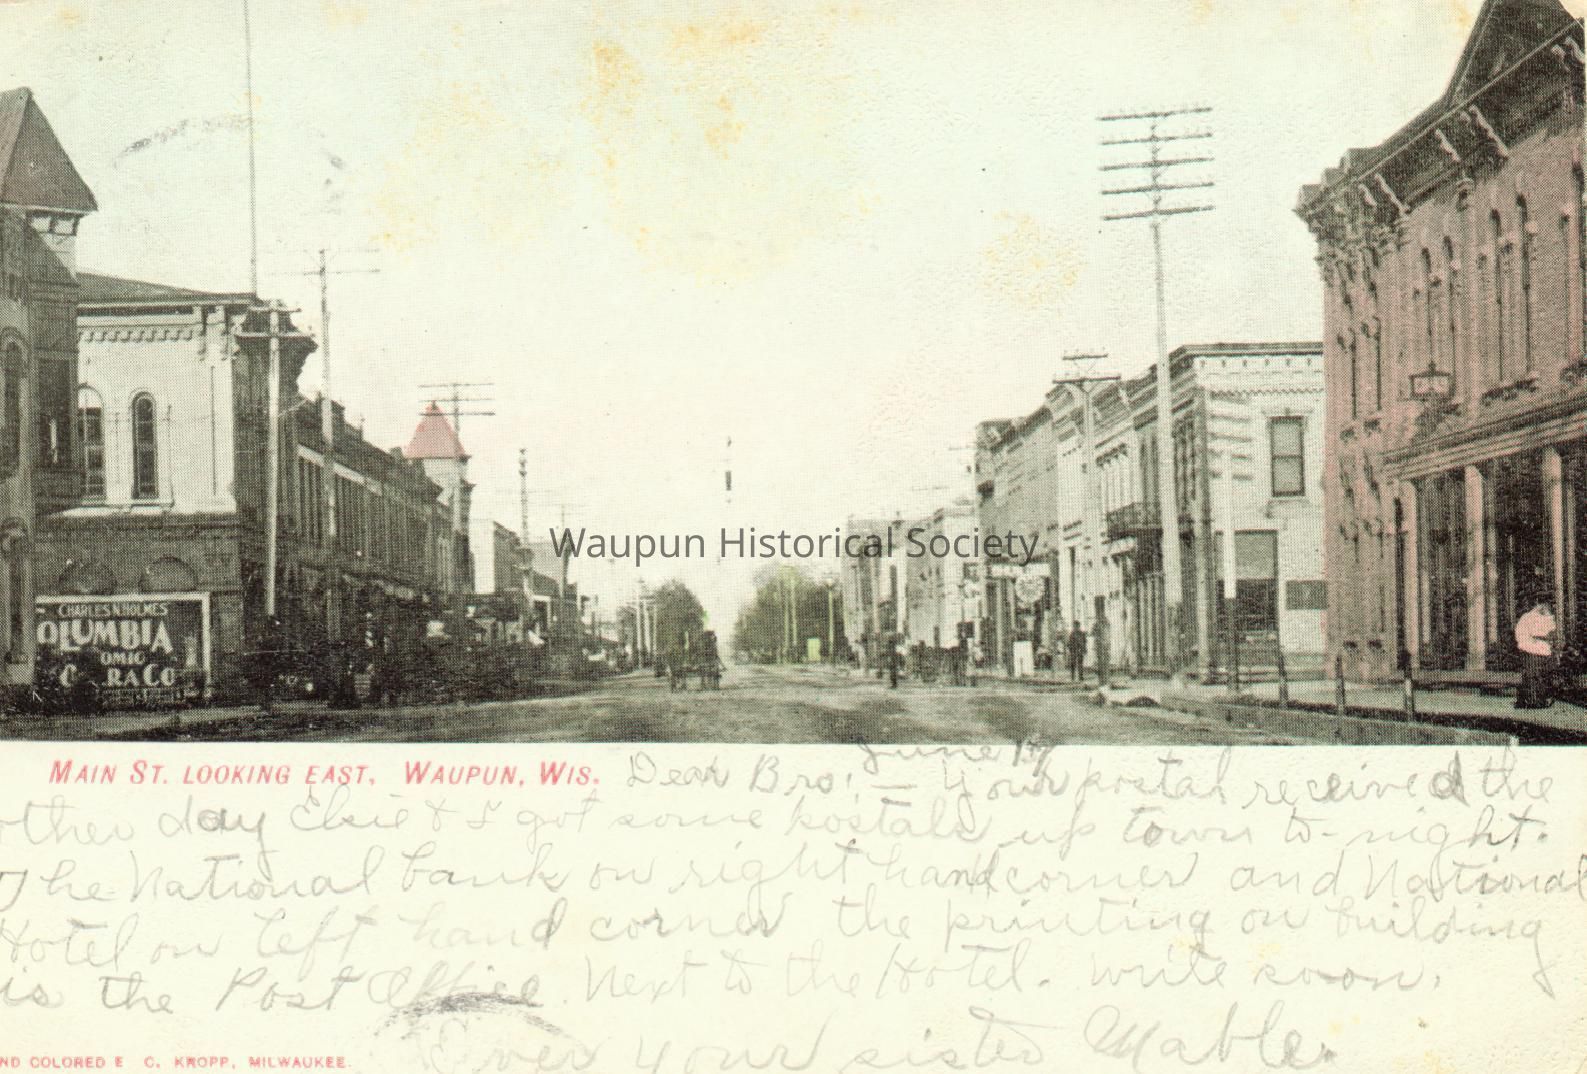 CHARLES N. HOLMES'
OLUMBIA
OMIC
RA CO
Waupun Historical Society
MAIN ST. LOOKING EAST, WAUPUN, WIS.
June 17
Dear Bro: — Your postal received the
other day Elsie & I got some postals up town to-night.
The National bank on right hand corner and National
Hotel on left hand corner the printing on building
is the Post Office. Next to the Hotel. write soon.
Ever your sister Mable.
ND COLORED E. C. KROPP, MILWAUKEE.